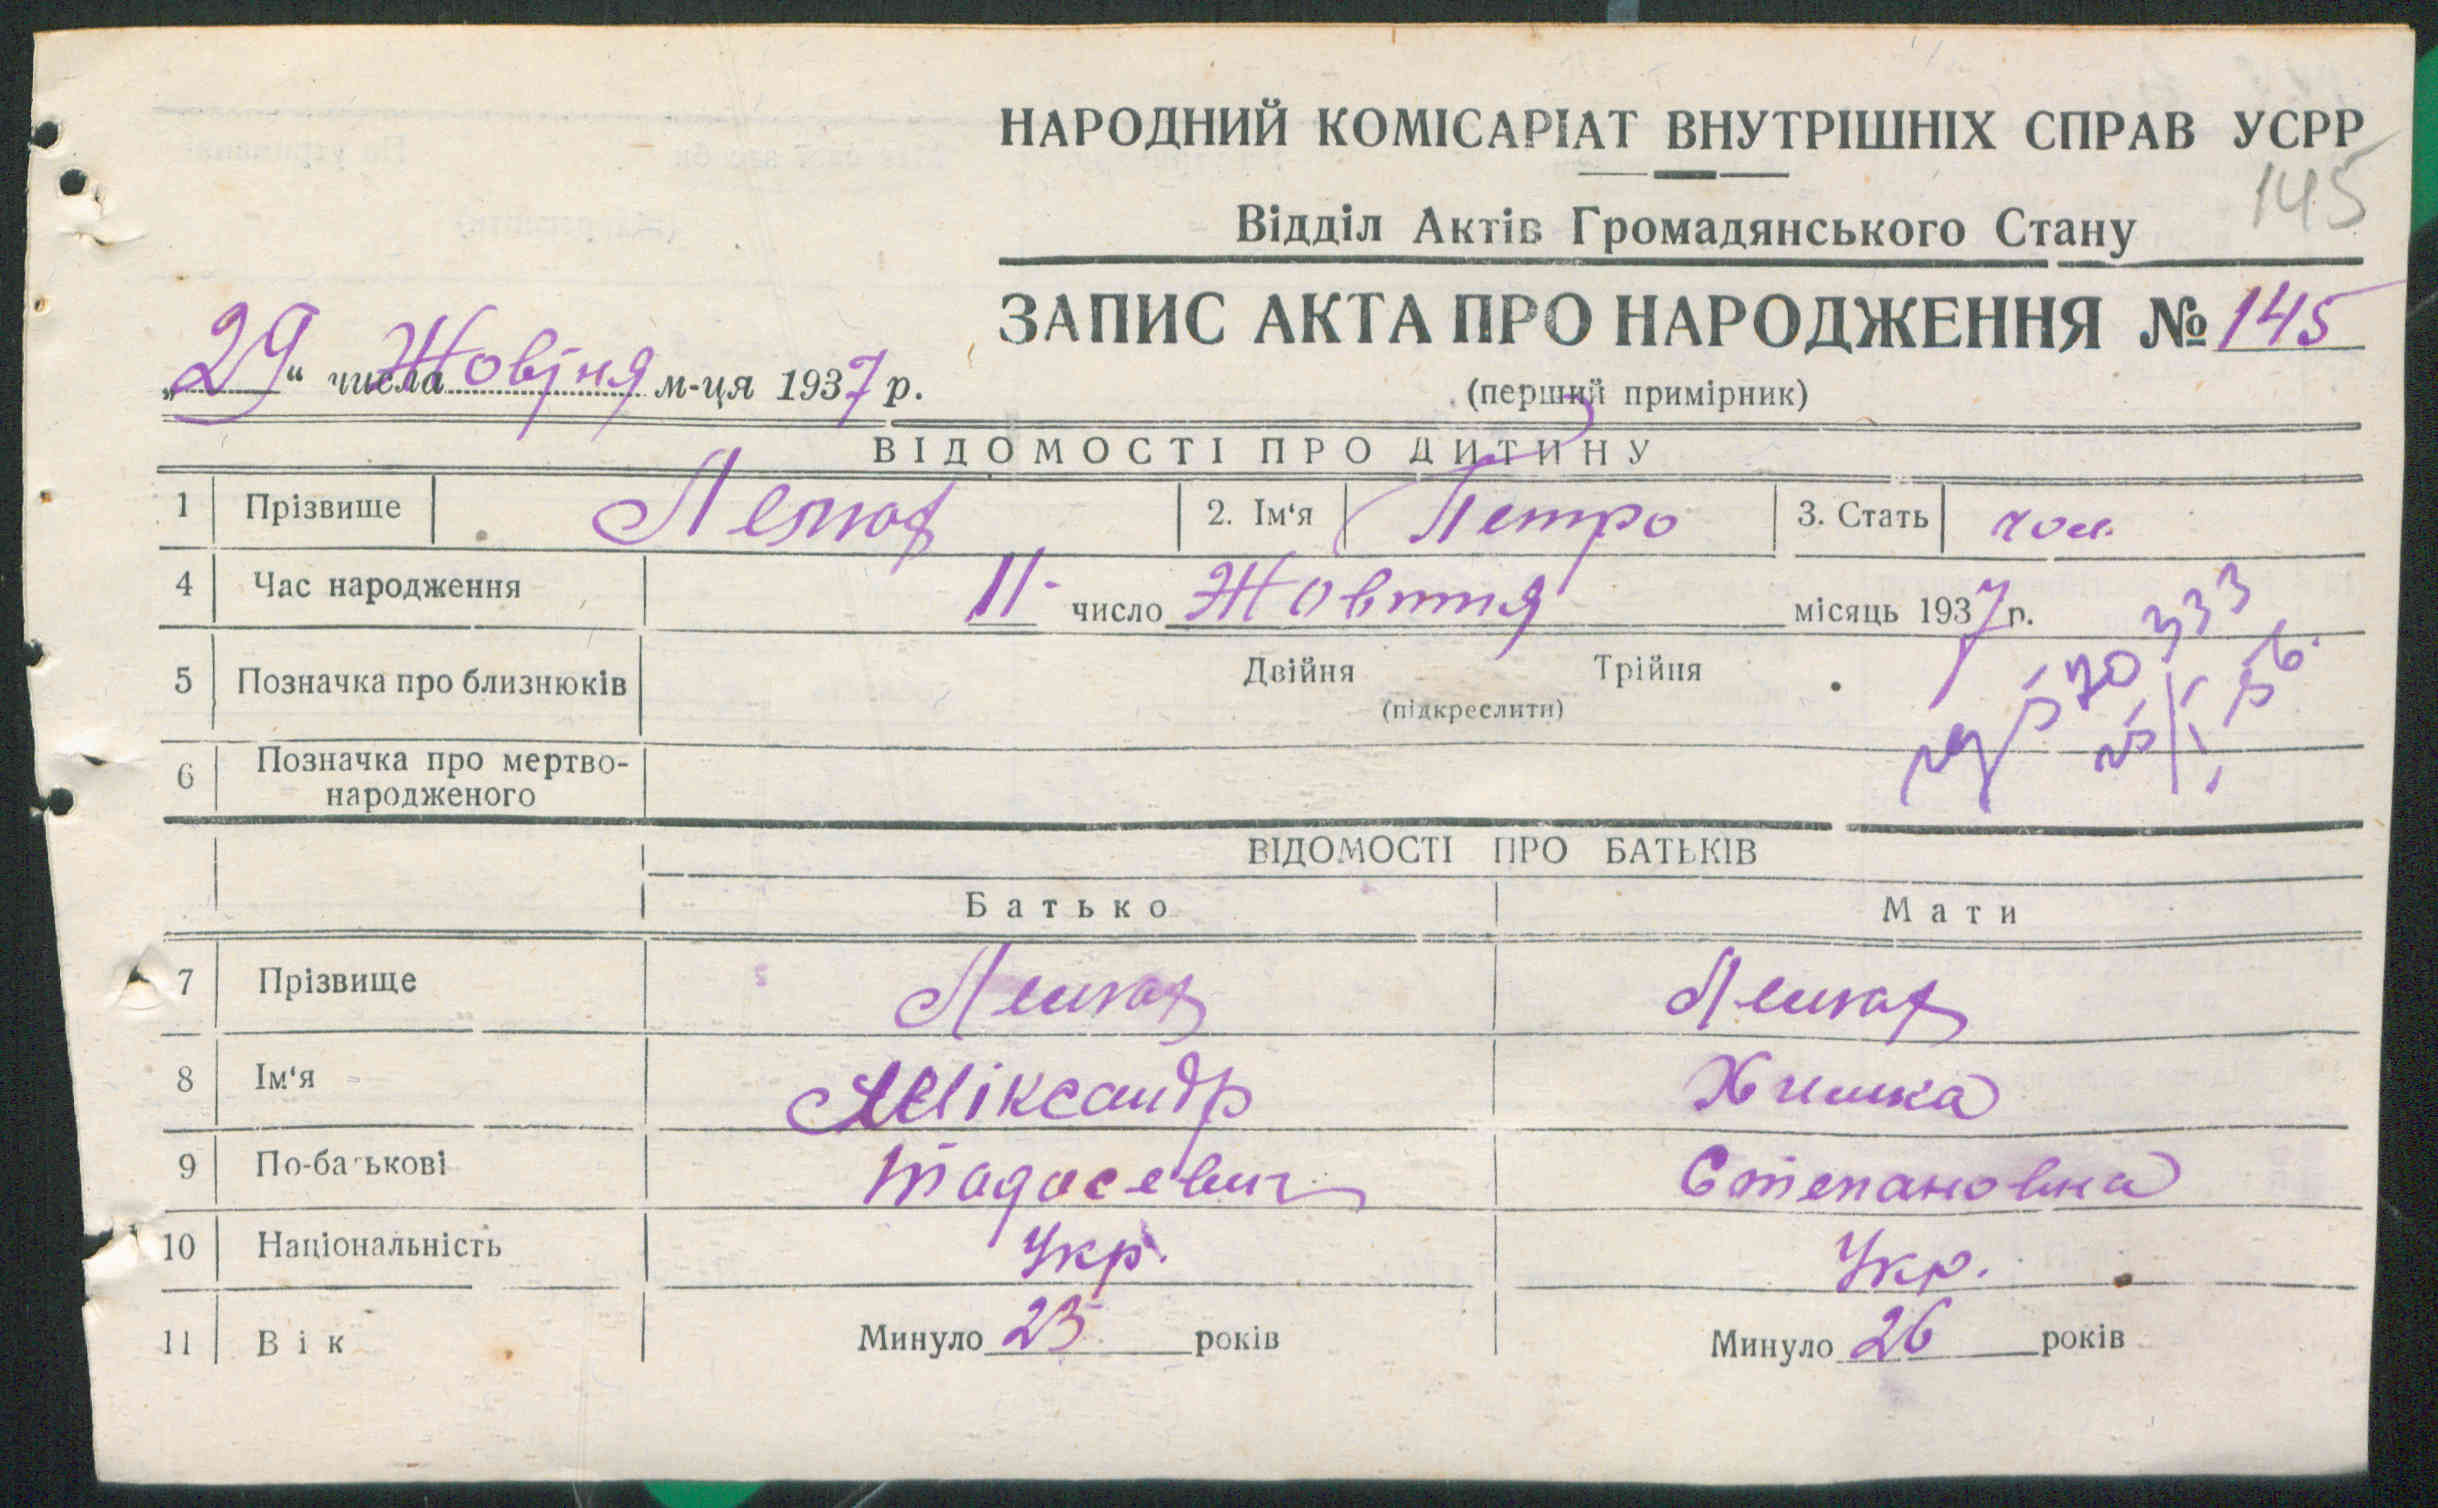 НАРОДНИЙ КОМІСАРІАТ ВНУТРІШНІХ СПРАВ УСРР
145
Відділ Актів Громадянського Стану
ЗАПИС АКТА ПРО НАРОДЖЕННЯ № 145
„29“ числа Жовтня м-ця 1937 р.
(перший примірник)
ВІДОМОСТІ ПРО ДИТИНУ
1 Прізвище 2. Ім‘я Петро 3. Стать чол.
4 Час народження 11 число Жовтня місяць 1937 р.
5 Позначка про близнюків Двійня Трійня
(підкреслити)
6 Позначка про мертво-
народженого
ВІДОМОСТІ ПРО БАТЬКІВ
Батько Мати
7 Прізвище
8 Ім‘я Аліксандр Химка
9 По-батькові Тодосевич Степановна
10 Національність Укр. Укр.
11 Вік Минуло 23 років Минуло 26 років